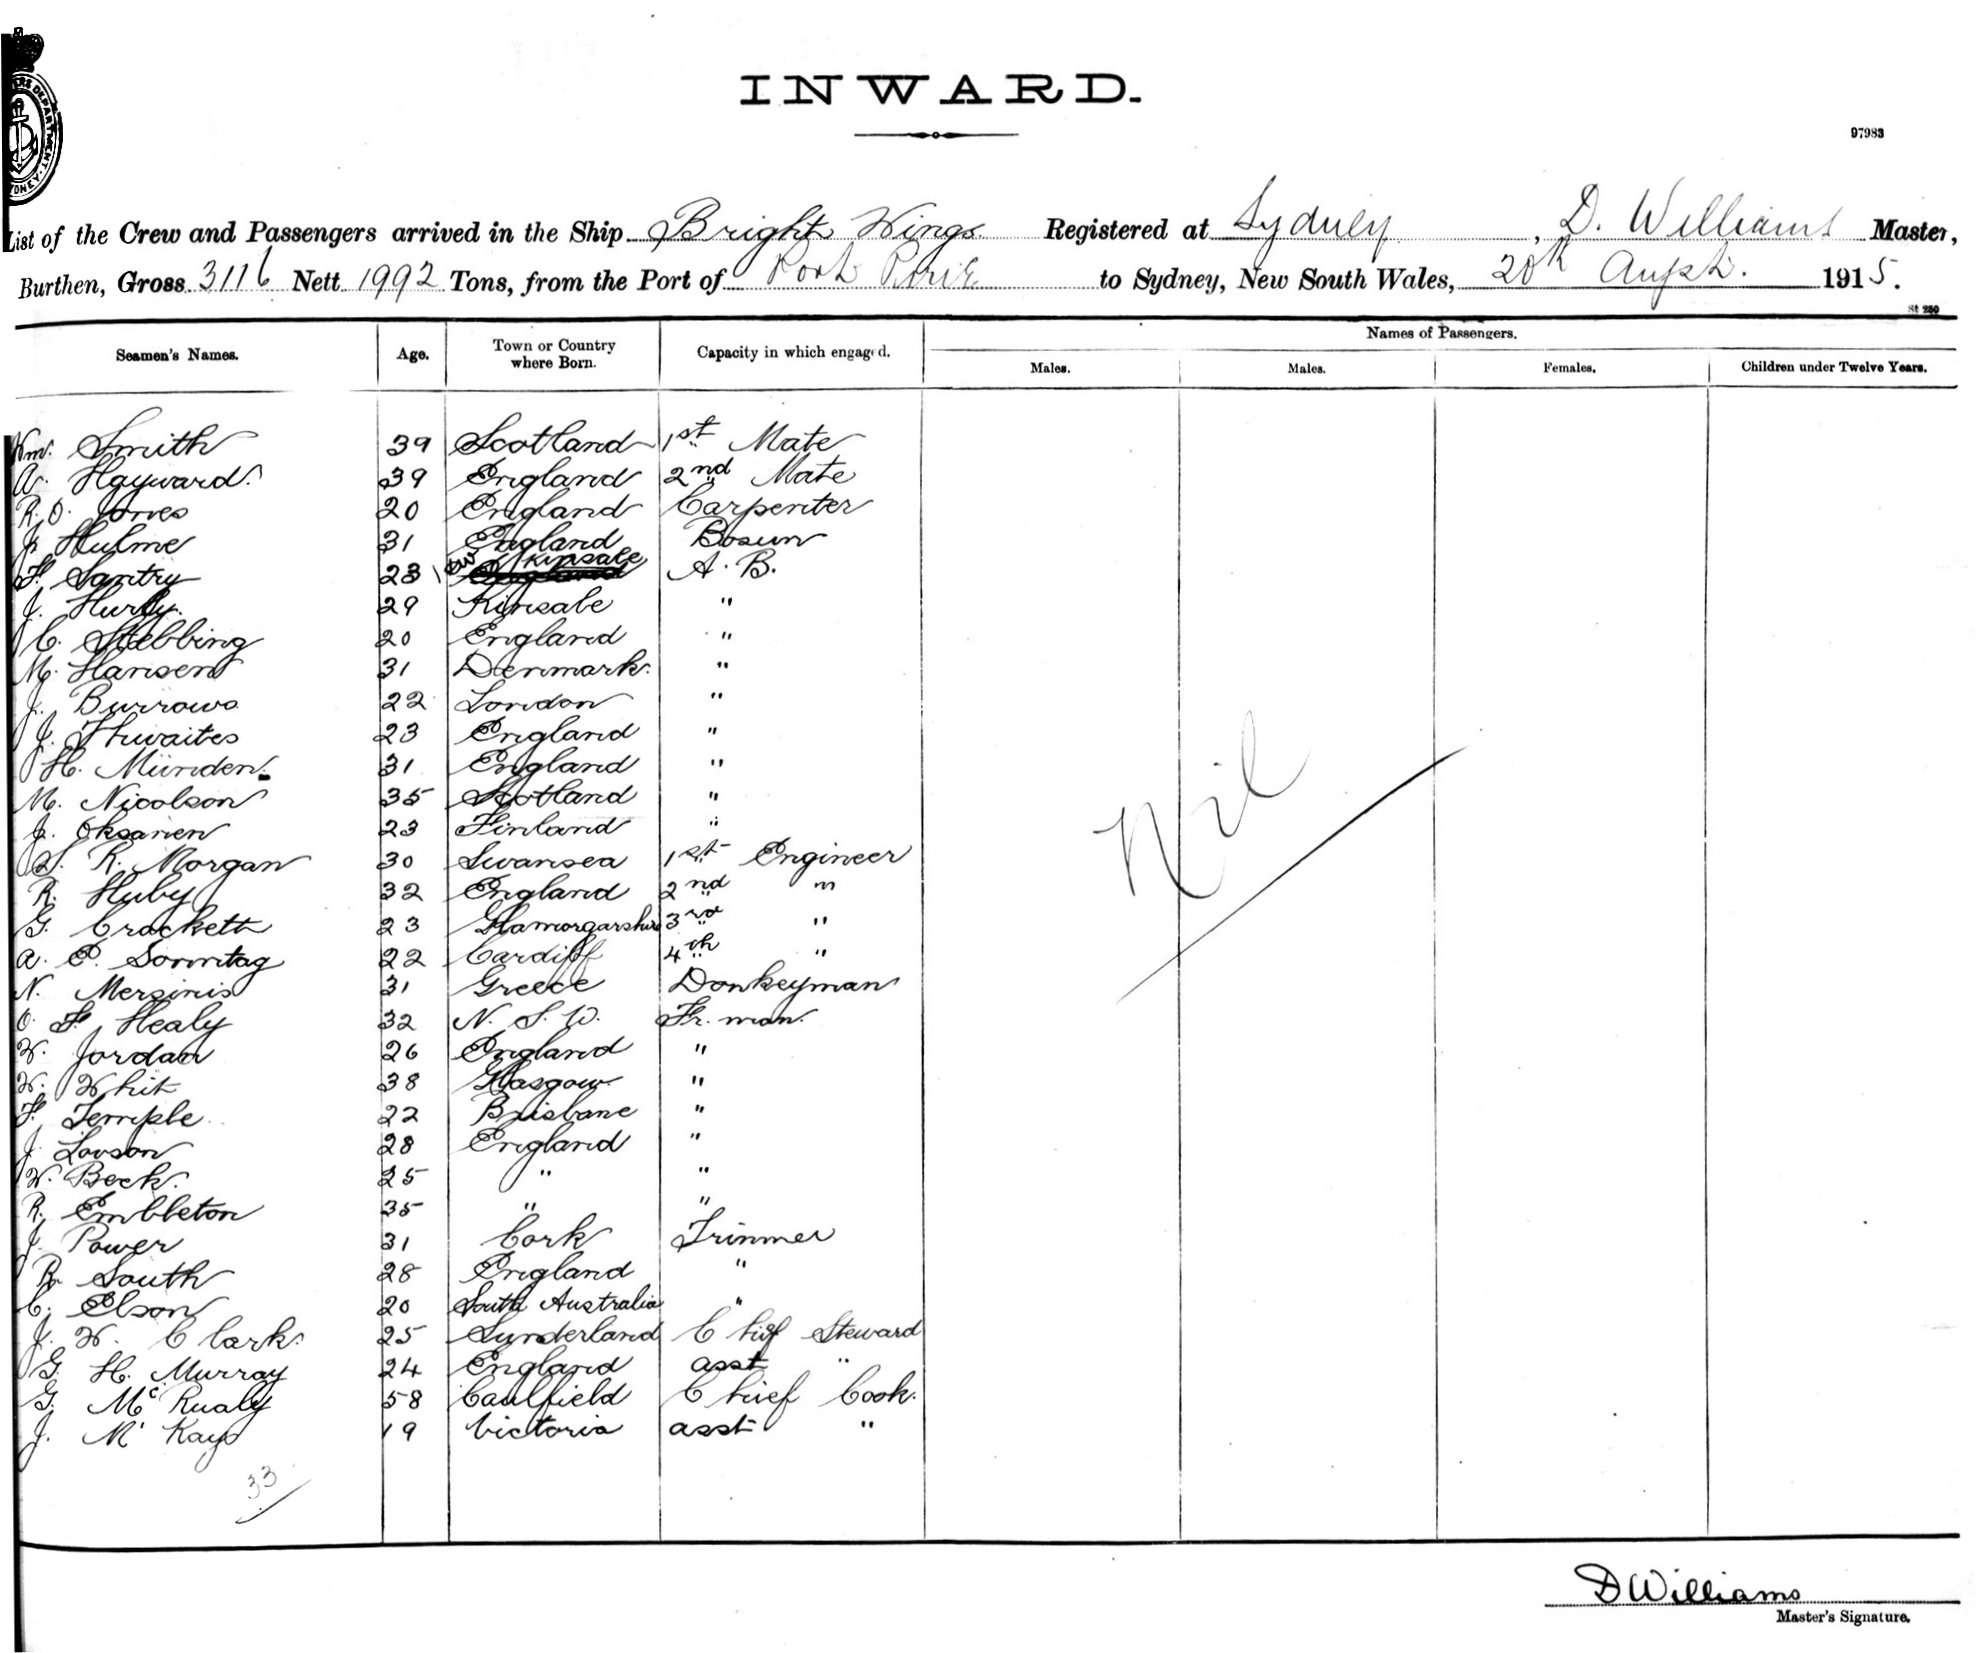 INWARD.
97983
List of the Crew and Passengers arrived in the Ship Bright Wings Registered at Sydney, D. Williams Master,
Burthen, Gross 3116 Nett 1992 Tons, from the Port of Port Pirie to Sydney, New South Wales, 20th Augst. 1915.
St 250
Seamen's Names. Age. Town or Country where Born. Capacity in which engaged. Names of Passengers.
Males. Males. Females. Children under Twelve Years.
Wm. Smith 39 Scotland 1st Mate
A. Hayward. 39 England 2nd Mate
R. O. Jones 20 England Carpenter
J. Hulme 31 England Bosun
F. Santry 23 Kinsale A. B.
J. Hurly. 29 Kinsale "
C. Stebbing 20 England "
M. Hansen 31 Denmark. "
J. Burrows 22 London "
J. Thwaites 23 England "
H. Münden. 31 England "
M. Nicolson 35 Scotland "
J. Oksanen 23 Finland "
S. R. Morgan 30 Swansea 1st Engineer
R. Huby 32 England 2nd "
G. Crockett 23 Glamorganshire 3rd "
A. P. Sonntag 22 Cardiff 4th "
N. Mersinis 31 Greece Donkeyman
O. F. Healy 32 N. S. W. Fr. man.
W. Jordan 26 England "
W. Whit 38 Glasgow "
F. Temple 22 Brisbane "
J. Lowson 28 England "
W. Beck. 25 " "
R. Embleton 35 " "
J. Power 31 Cork Trimmer
R. South 28 England "
C. Elson 20 South Australia "
J. W. Clark. 25 Sunderland Chief Steward
G. H. Murray 24 England asst "
G. Mc Rualy 58 Caulfield Chief Cook.
J. Mc Kay 19 Victoria asst "
Nil
33
D Williams
Master's Signature.